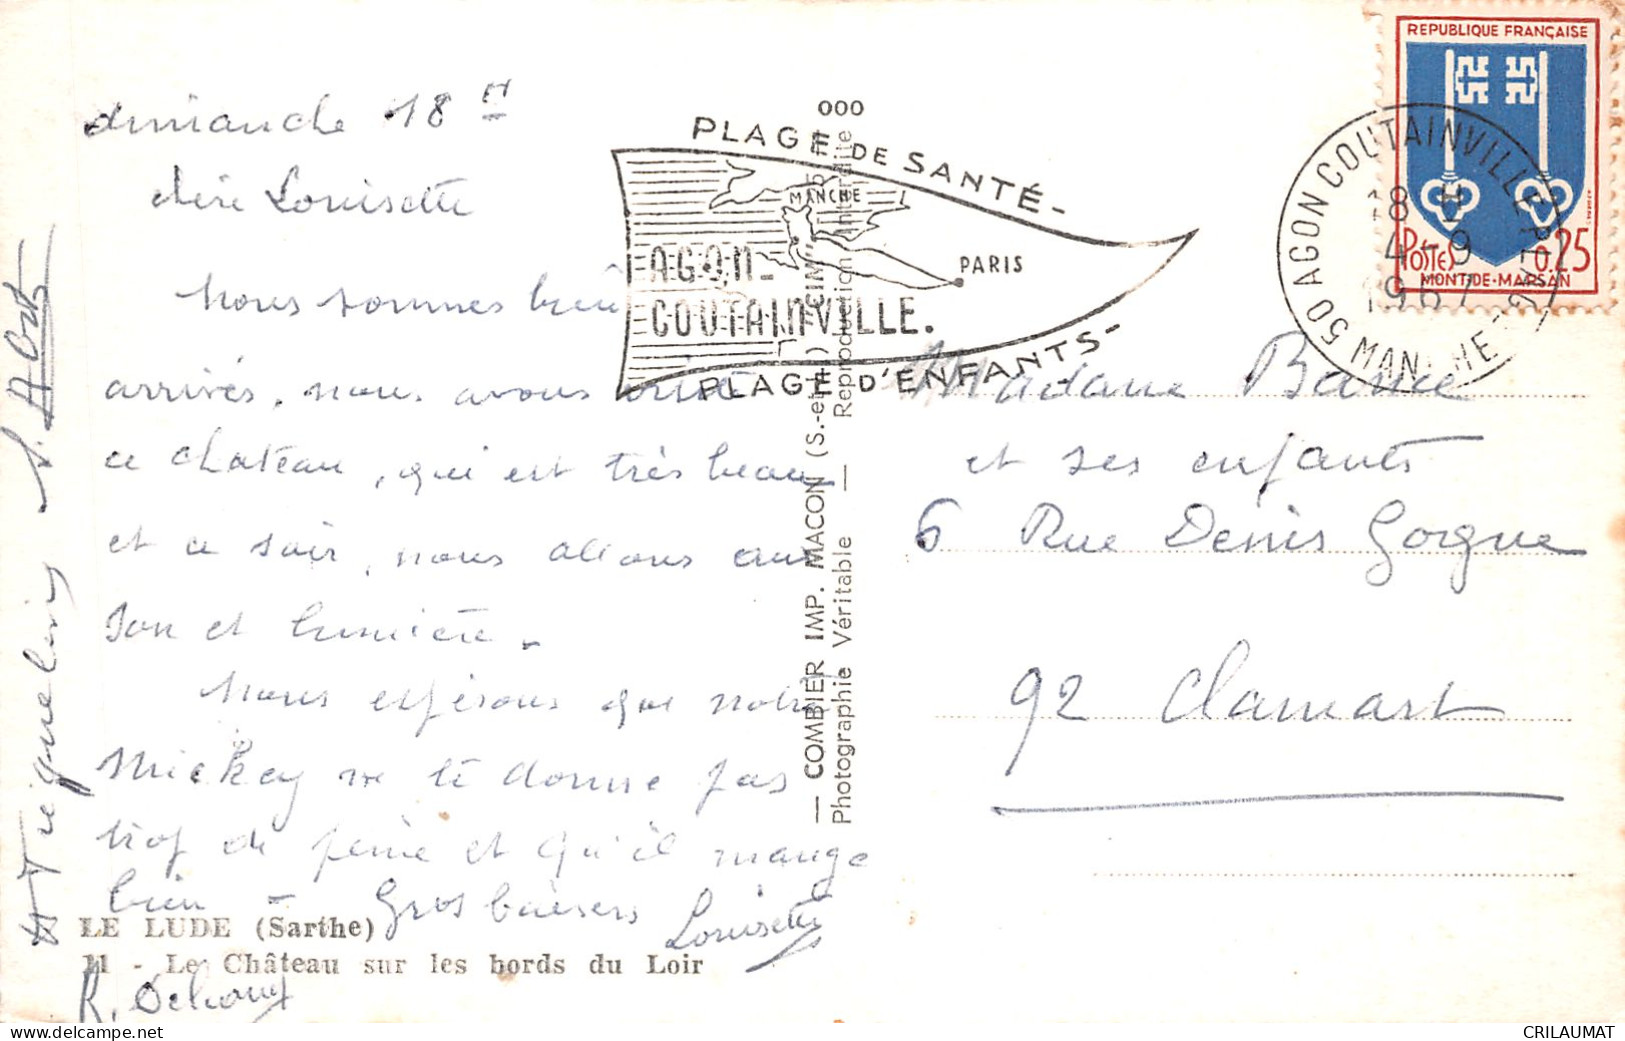 dimanche 18 H
chère Louisette
Nous sommes bien
arrivés, nous avons visité
ce chateau, qui est très beau
et ce soir, nous allons aux
Son et lumière.
Nous espérons que notre
Mickey ne te donne pas
trop de peine et qu'il mange
bien - Gros baisers
Louisette
LE LUDE (Sarthe)
11 - Le Château sur les bords du Loir
000
PLAGE DE SANTÉ-
MANCHE
PARIS
AGON-
COUTAINVILLE.
PLAGE D'ENFANTS-
— COMBIER IMP. MACON (S.-et-L.) "CIM"
Photographie Véritable — Reproduction interdite
REPUBLIQUE FRANÇAISE
POSTES 0.25
MONT-DE-MARSAN
50 AGON COUTAINVILLE
MANCHE
18 H
4 - 9
1967
Madame Bance
et ses enfants
6 Rue Denis Gorgue
92 Clamart
CRILAUMAT
www.delcampe.net